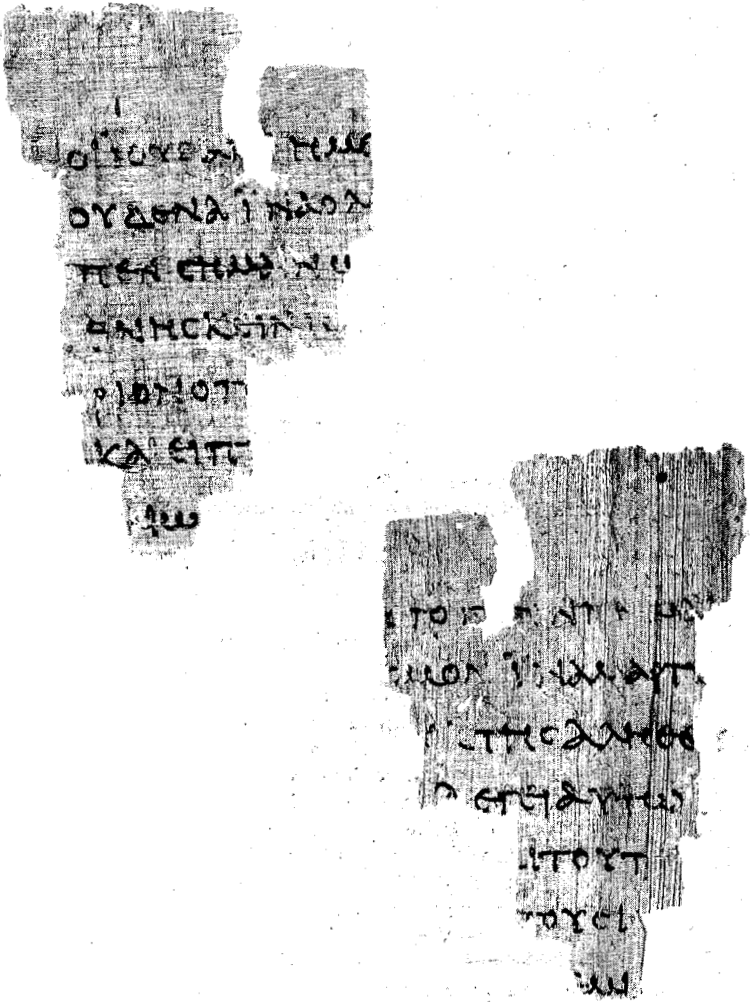 ΟΙ ΙΟΥΔΑΙ ΗΜΕ
ΟΥΔΕΝΑ ΙΝΑ Ο Λ
ΠΕΝ ϹΗΜΑΙΝΩ
ΘΝΗϹΚΕΙΝ ΙϹ
ΡΙΟΝ Ο Π
ΚΑΙ ΕΙΠ
ΤΟ Γ Ε ΝΝΗΜΑΙ
ϹΜΟΝ ΙΝΑ ΜΑΡΤΥ
ΤΗϹ ΑΛΗΘΕ
ΛΕΓΕΙ ΑΥΤΩ
ΑΙ ΤΟΥΤ
ΤΟΥϹ Ι
ΜΙ